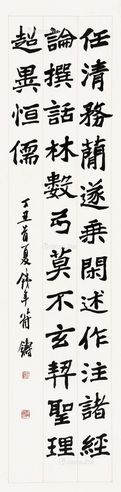 任清務蕑遂乗閑述作注諸經
論撰話林數弓莫不玄契聖理
超異恒儒
丁丑首夏鐵年符鑄